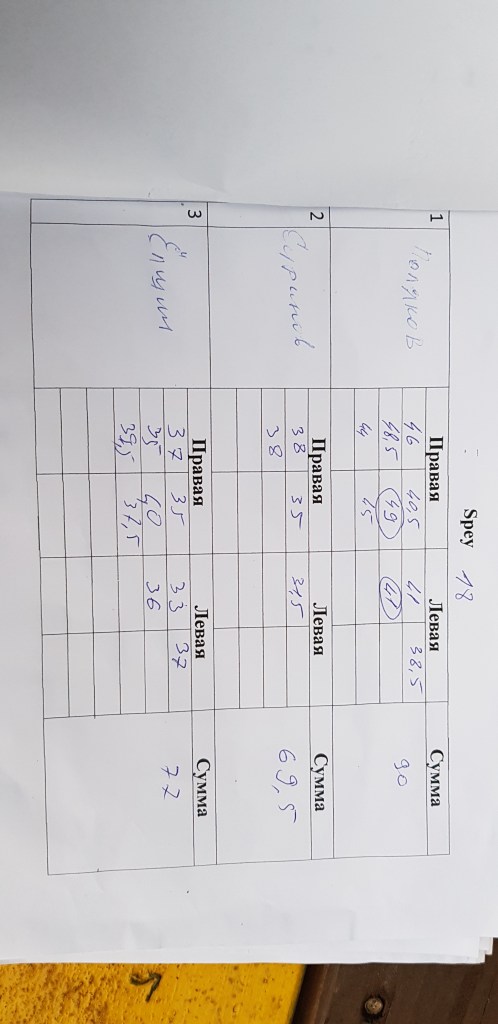 Spey 18
1 Поляков Правая Левая Сумма
46 40,5 41 38,5 90
48,5 49 41
44 45
2 Правая Левая Сумма
38 35 31,5 69,5
38
3 Ёлшин Правая Левая Сумма
37 35 33 37 77
35 40 36
39,5 37,5